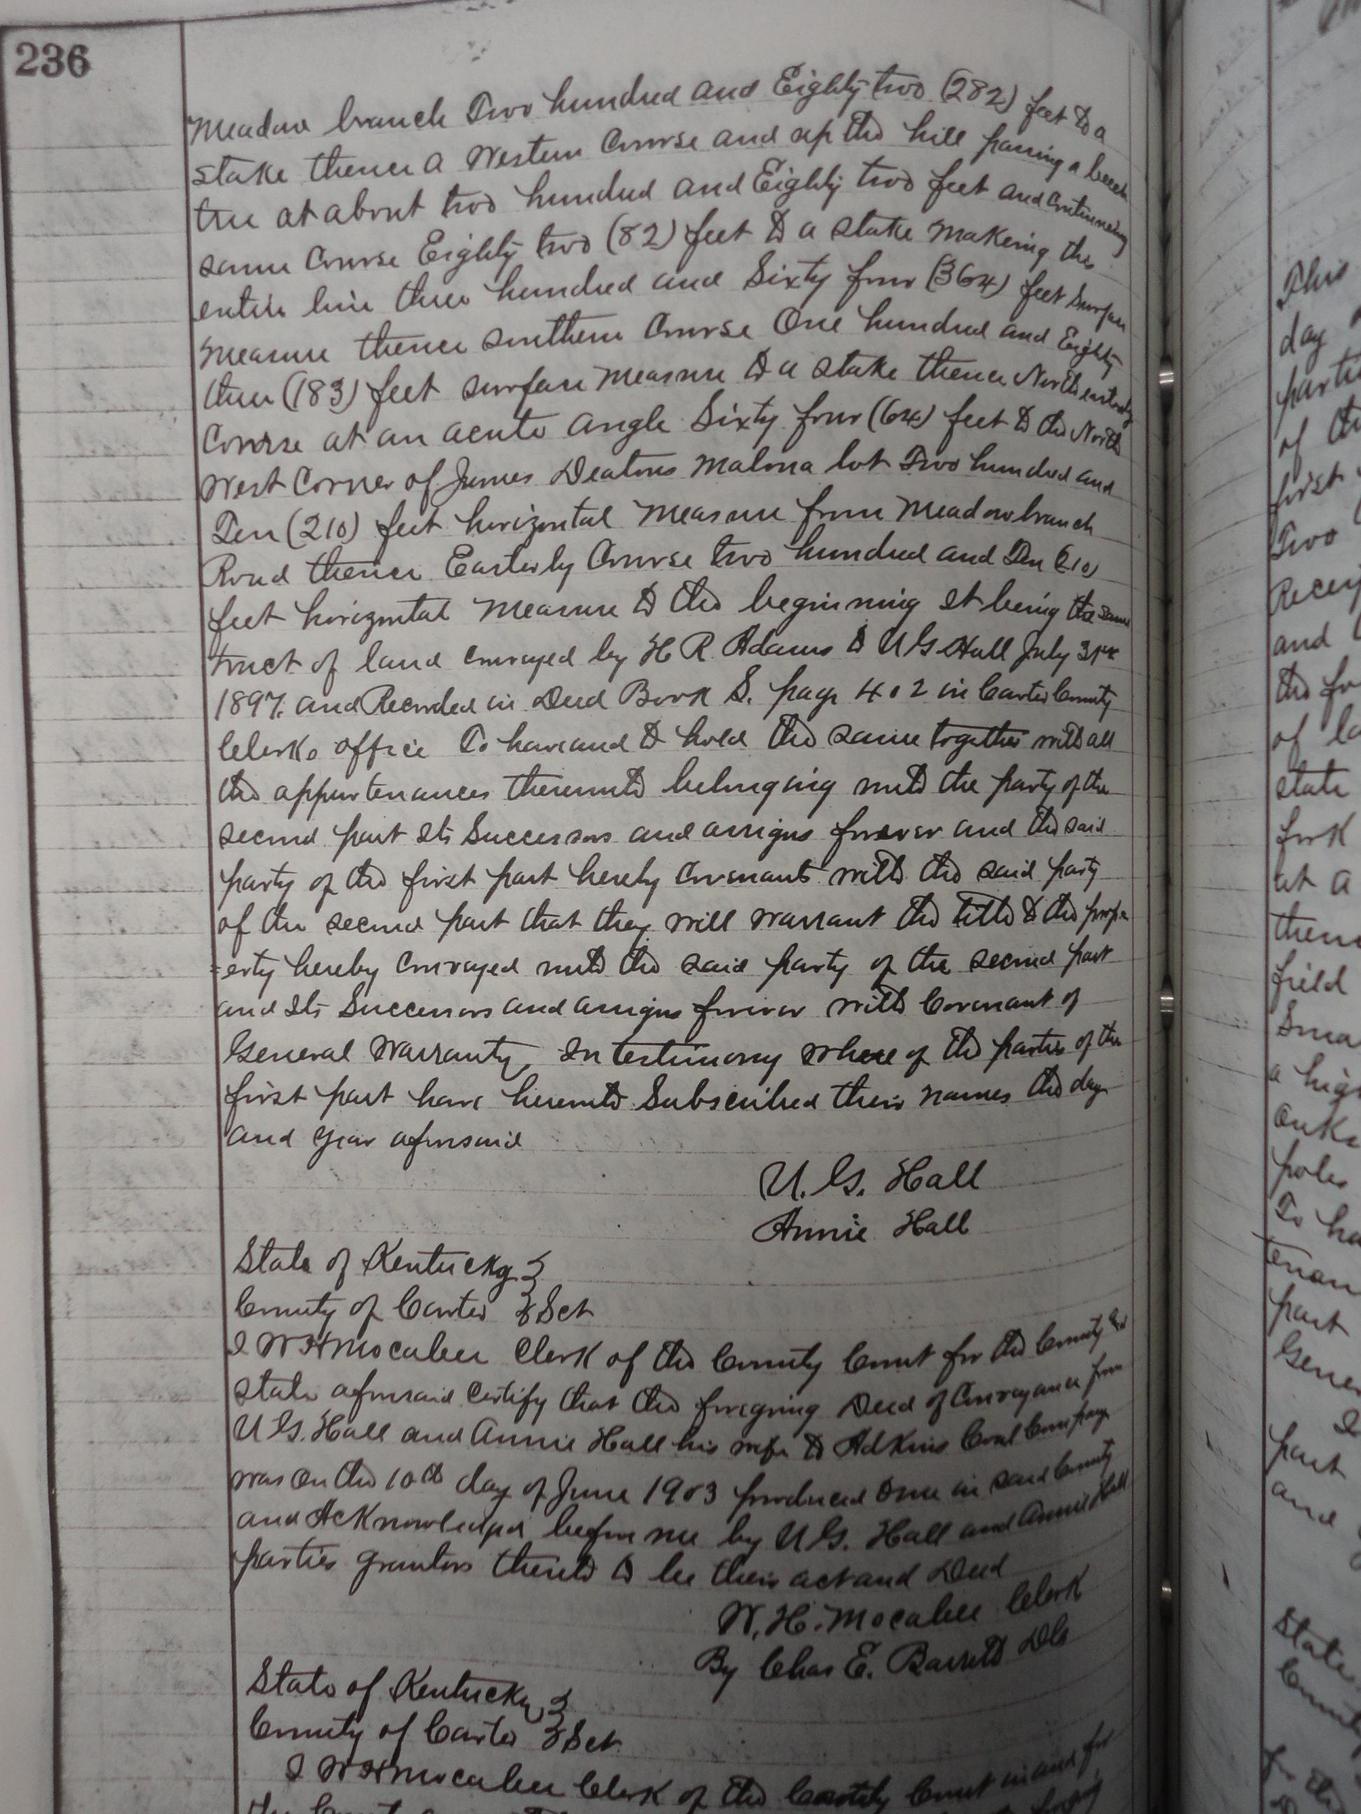 236
Meadow branch Two hundred and Eighty two (282) feet to a
stake thence a Western Course and up the hill passing a beech
tree at about two hundred and Eighty two feet and continueing
same Course Eighty two (82) feet to a stake Makeing the
entire line three hundred and Sixty four (364) feet Surface
Measure thence southern Course One hundred and Eighty
three (183) feet surface Measure to a stake thence North easterly
Course at an acute angle Sixty four (64) feet to the North
West Corner of James Deatons Malona lot Two hundred and
Ten (210) feet horizontal Measure from Meadow branch
Road thence Easterly Course two hundred and Ten (210)
feet horizontal Measure to the beginning It being the same
tract of land conveyed by H R Adams to U G Hall July 31st
1897. and Recorded in Deed Book S. page 402 in Carter County
Clerks office To have and to hold the same together with all
the appurtenances thereunto belonging unto the party of the
second part Its Successors and assigns forever and the said
party of the first part hereby Covenants with the said party
of the second part that they will warrant the title to the prop-
=erty hereby Conveyed unto the said party of the second part
and Its Successors and assigns forever with Covenant of
General Warranty, In testimony where of the parties of the
first part have hereunto Subscribed their names the day
and year aforesaid
U. G. Hall
Annie Hall
State of Kentucky }
County of Carter } Sct
I W H Mocabee Clerk of the County Court for the County &
state aforesaid Certify that the foregoing Deed of Conveyance from
U G. Hall and Annie Hall his wife to Adkins Coal Company
was on the 10th day of June 1903 produced to me in said County
and Acknowledged before me by U G. Hall and Annie Hall
parties grantors thereto to be their act and Deed
W. H. Mocabee Clerk
By Chas E. Barrett DC
State of Kentucky }
County of Carter } Sct.
I W H Mocabee Clerk of the County Court in and for
This
day
parti
of the
first
Two
Receip
and
the fo
of la
state
fork
at a
thenc
field
Smal
a high
Oaks
poles
To ha
tenan
part
Gener
I
part
and
State
County